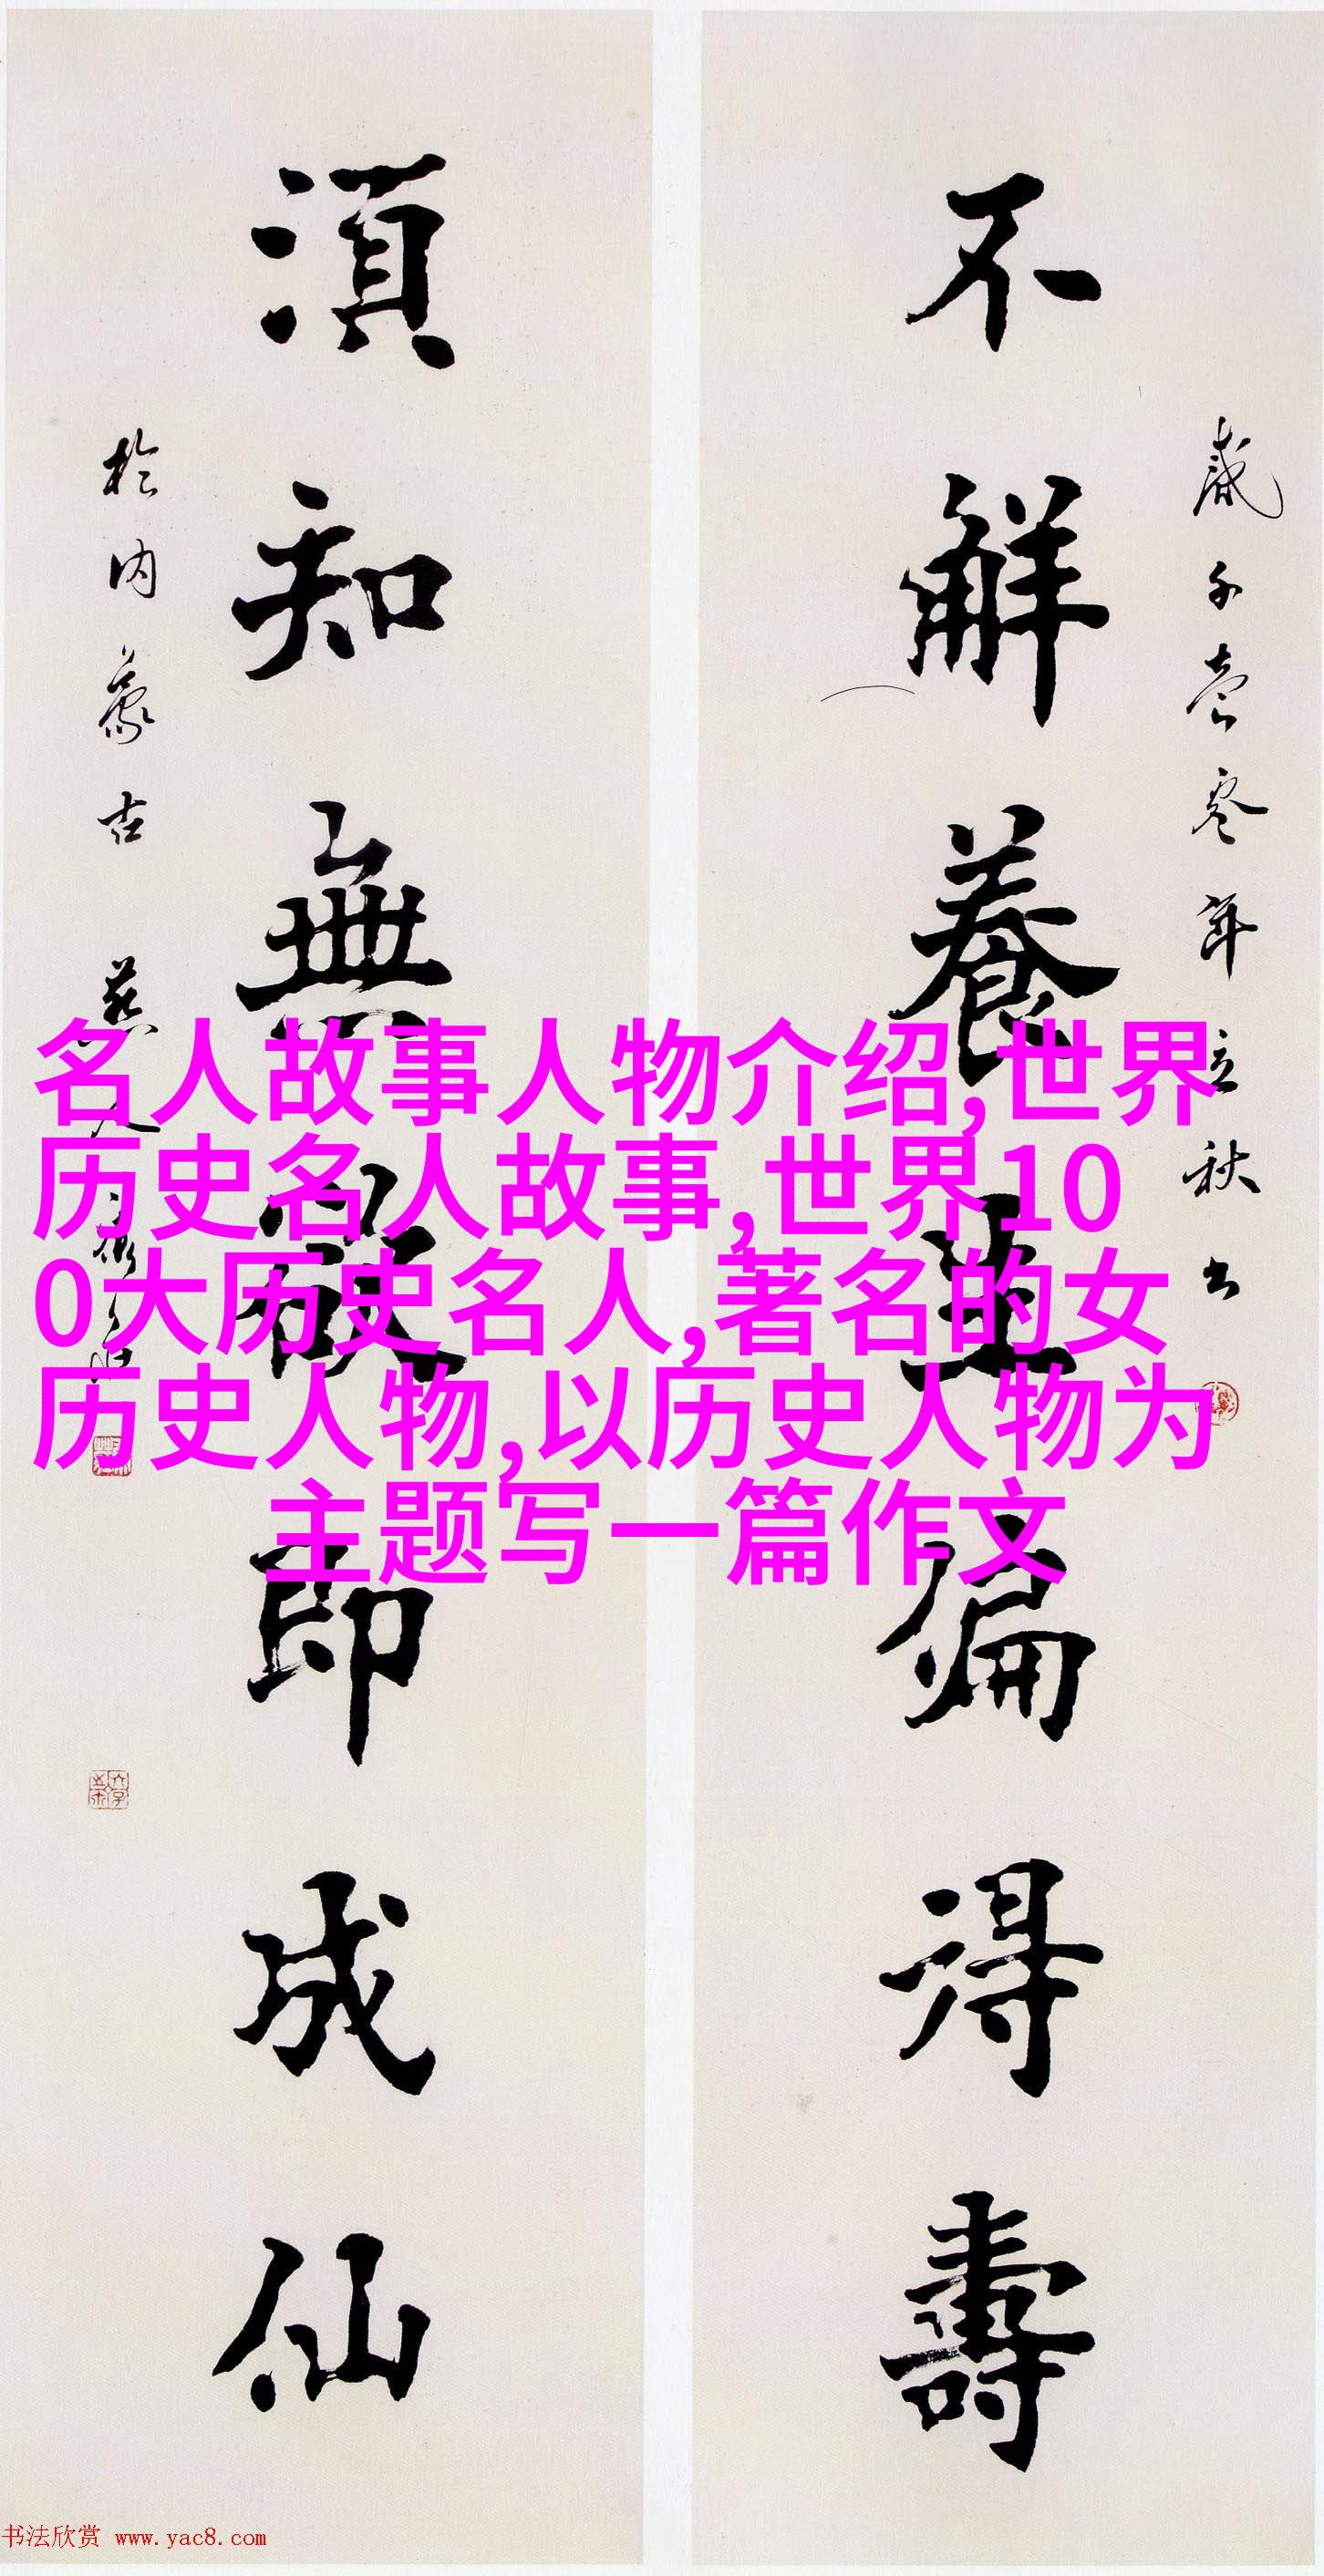 不解養生偏得壽
歲于壹零年立秋書
須知無欲即成仙
於內蒙古
名人故事人物介绍,世界
历史名人故事,世界10
0大历史名人,著名的女
历史人物,以历史人物为
主题写一篇作文
书法欣赏 www.yac8.com